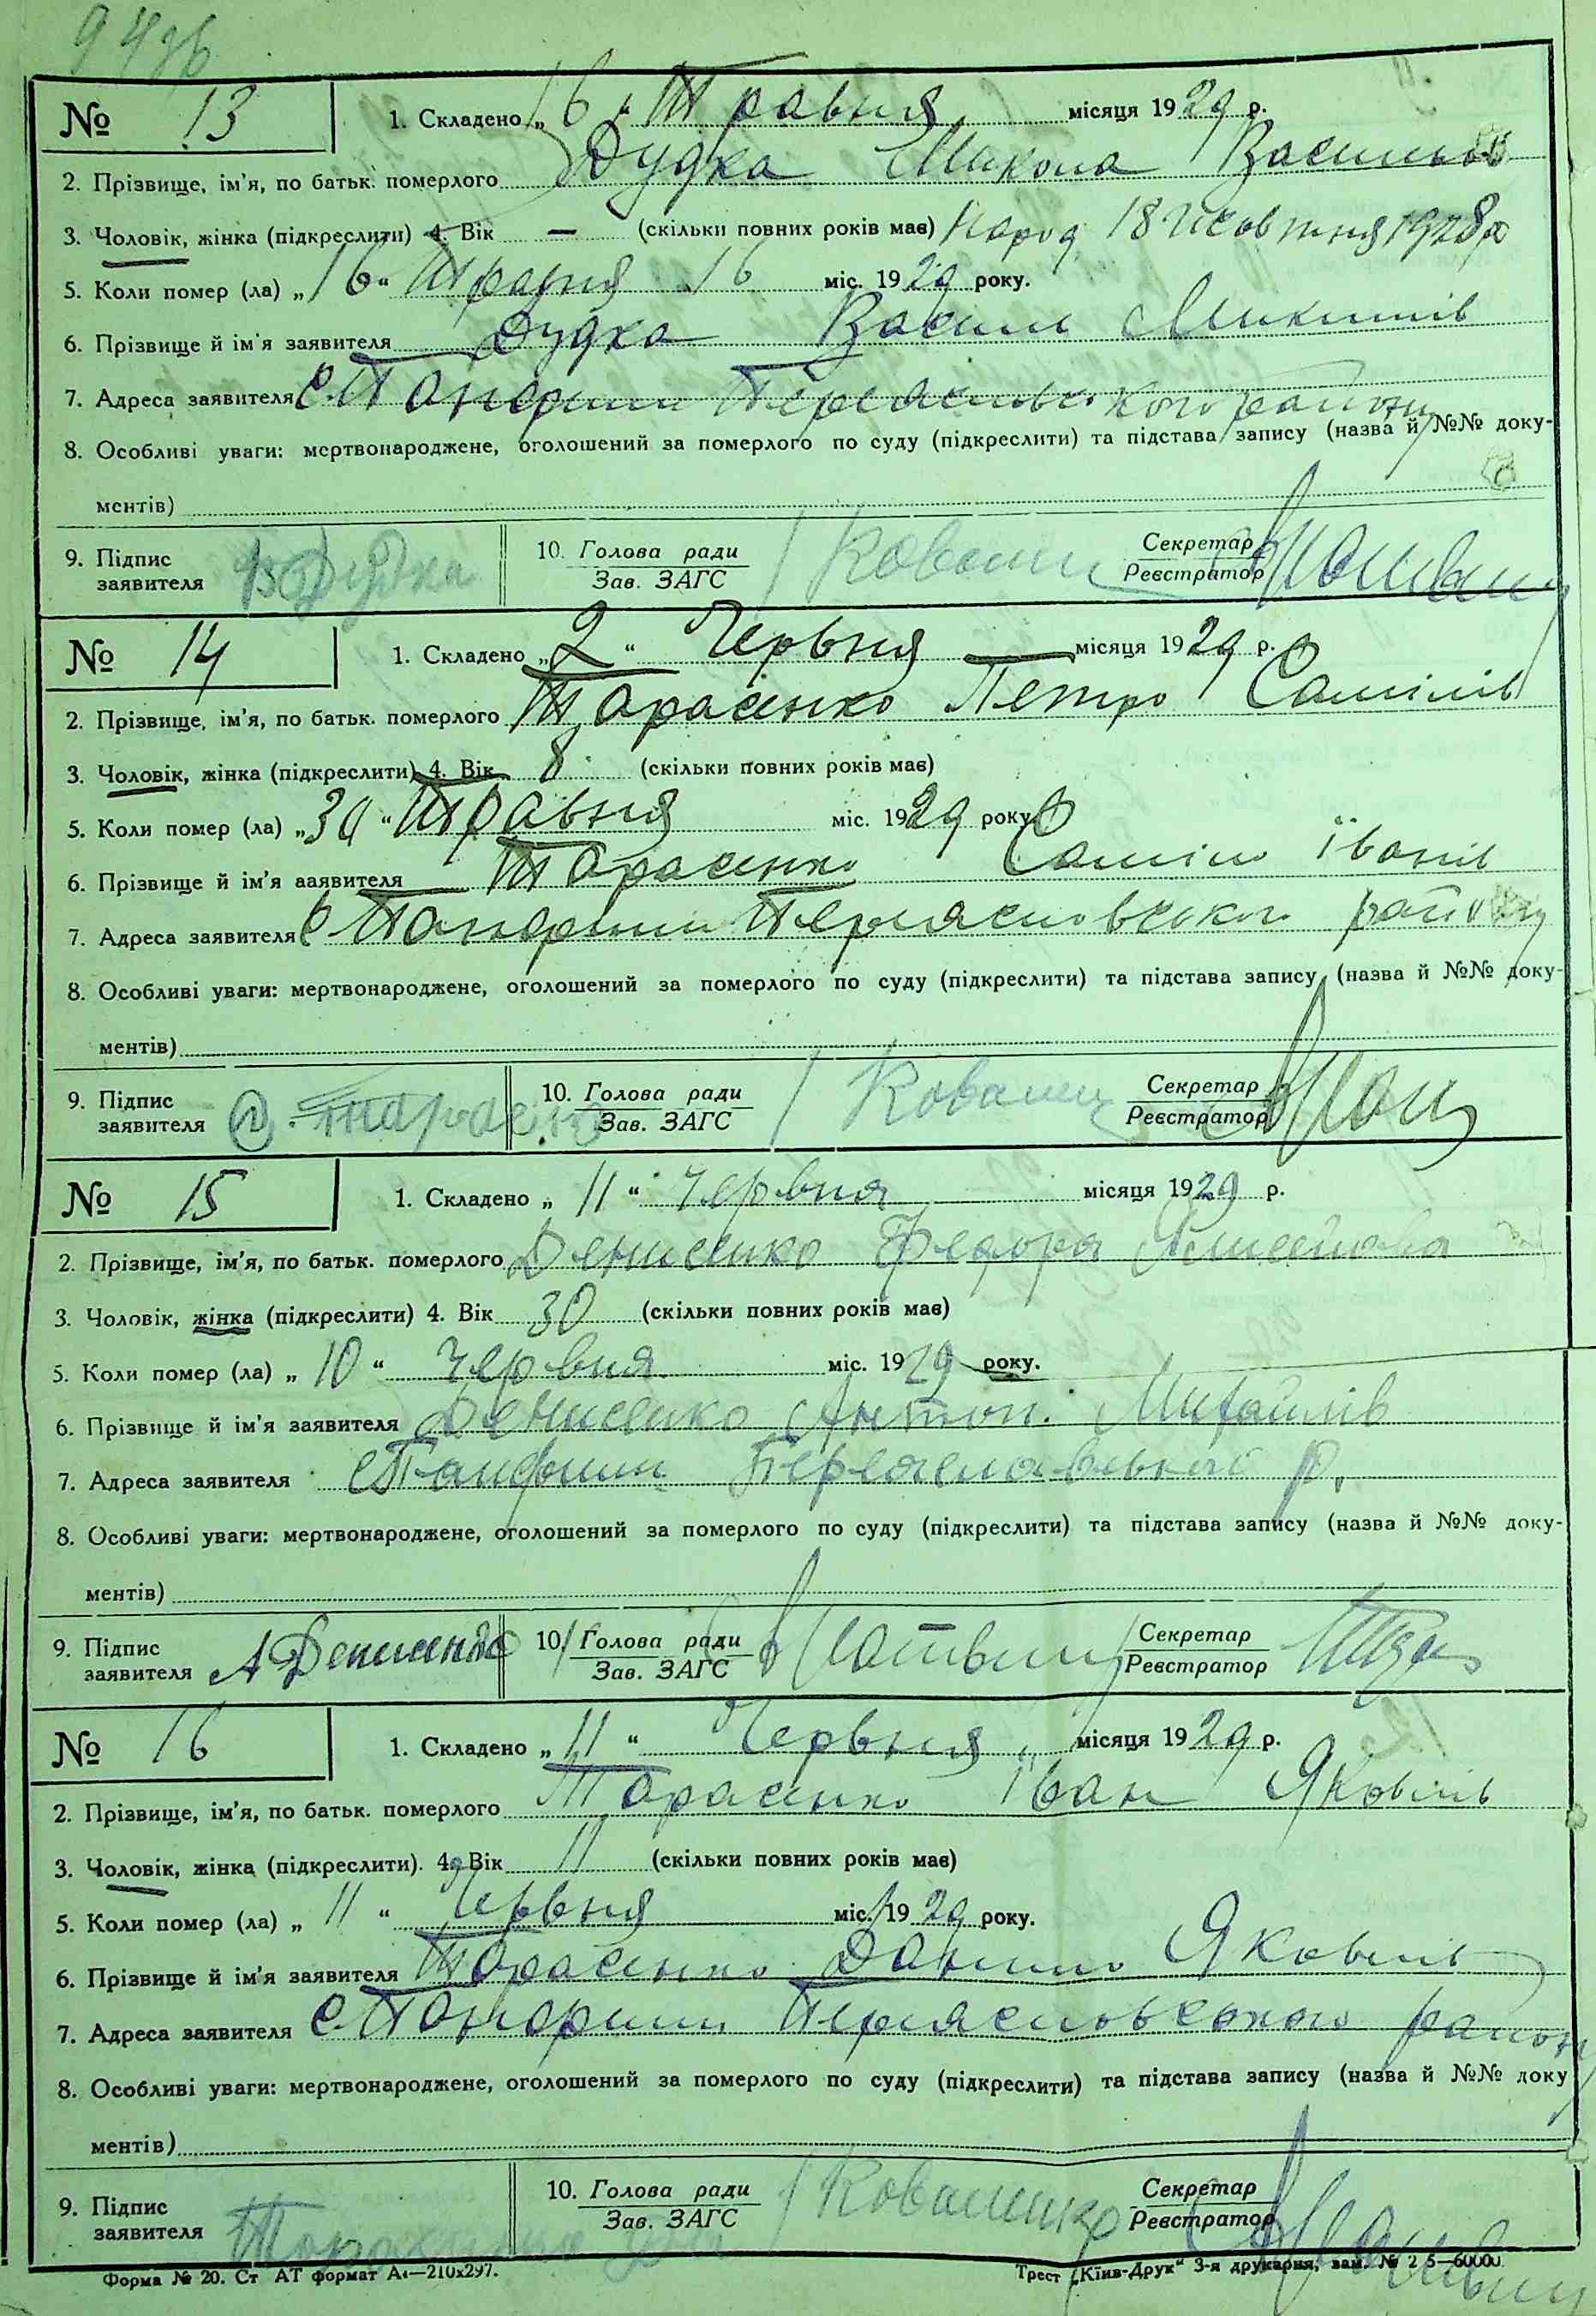 94 зв
№ 13
1. Складено „16“ Травня місяця 1929 р.
2. Прізвище, ім'я, по батьк. померлого Дудка Микола Васильов
3. Чоловік, жінка (підкреслити) 4. Вік — (скільки повних років має) Народ 18 жовтня 1928 р
5. Коли помер (ла) „16“ Травня 16 міс. 1929 року.
6. Прізвище й ім'я заявителя Дудка Васил Микитів
7. Адреса заявителя С. Панфили Переяславського району
8. Особливі уваги: мертвонароджене, оголошений за померлого по суду (підкреслити) та підстава запису (назва й №№ доку-
ментів)
9. Підпис заявителя В Дудка
10. Голова ради Зав. ЗАГС Секретар Реєстратор
№ 14
1. Складено „2“ Червня місяця 1929 р.
2. Прізвище, ім'я, по батьк. померлого Тарасенко Петро Самілів
3. Чоловік, жінка (підкреслити) 4. Вік 8 (скільки повних років має)
5. Коли помер (ла) „30“ Травня міс. 1929 року
6. Прізвище й ім'я заявителя Тарасенко Саміло Іванів
7. Адреса заявителя С. Панфили Переяславського району
8. Особливі уваги: мертвонароджене, оголошений за померлого по суду (підкреслити) та підстава запису (назва й №№ доку-
ментів)
9. Підпис заявителя
10. Голова ради Зав. ЗАГС Секретар Реєстратор
№ 15
1. Складено „11“ Червня місяця 1929 р.
2. Прізвище, ім'я, по батьк. померлого Денисенко Федора
3. Чоловік, жінка (підкреслити) 4. Вік 30 (скільки повних років має)
5. Коли помер (ла) „10“ Червня міс. 1929 року.
6. Прізвище й ім'я заявителя Денисенко Антон Михайлів
7. Адреса заявителя с Панфили Переяславський р.
8. Особливі уваги: мертвонароджене, оголошений за померлого по суду (підкреслити) та підстава запису (назва й №№ доку-
ментів)
9. Підпис заявителя А Денисенко
10. Голова ради Зав. ЗАГС Секретар Реєстратор
№ 16
1. Складено „11“ Червня місяця 1929 р.
2. Прізвище, ім'я, по батьк. померлого Тарасенко Іван Яковлів
3. Чоловік, жінка (підкреслити). 4. Вік 11 (скільки повних років має)
5. Коли помер (ла) „11“ Червня міс. 1929 року.
6. Прізвище й ім'я заявителя Тарасенко Данило Яковлів
7. Адреса заявителя С. Панфили Переяславського району
8. Особливі уваги: мертвонароджене, оголошений за померлого по суду (підкреслити) та підстава запису (назва й №№ доку
ментів)
9. Підпис заявителя
10. Голова ради Зав. ЗАГС Коваленко Секретар Реєстратор
Форма № 20. Ст АТ формат А4—210х297.
Трест „Київ-Друк“ 3-я друкарня, зам. №